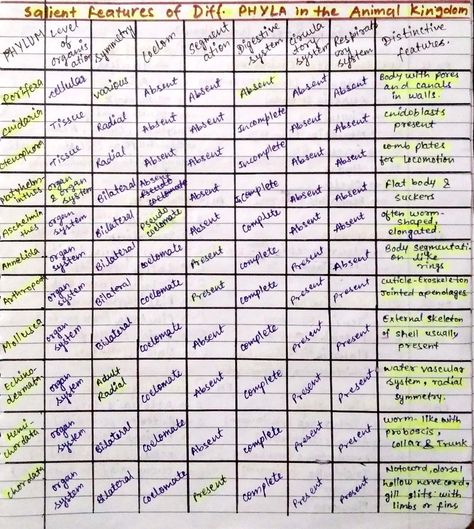 Salient Features of Diff. PHYLA in the Animal Kingdom
PHYLUM | Level of organisation | Symmetry | Coelom | Segmentation | Digestive system | Circulatory system | Respiratory system | Distinctive features.
Porifera | cellular | various | Absent | Absent | Absent | Absent | Absent | Body with pores and canals in walls.
Cnidaria | Tissue | Radial | Absent | Absent | Incomplete | Absent | Absent | cnidoblasts present
Ctenophora | Tissue | Radial | Absent | Absent | Incomplete | Absent | Absent | comb plates for locomotion
Platyhelminthes | organ & organ system | Bilateral | Absent | Absent | Incomplete | Absent | Absent | Flat body & suckers
Aschelminthes | organ system | Bilateral | Pseudo coelomate | Absent | complete | Absent | Absent | often worm-shaped, elongated.
Annelida | organ system | Bilateral | coelomate | Present | complete | Present | Absent | Body segmentation like rings
Arthropoda | organ system | Bilateral | coelomate | Present | complete | Present | Present | cuticle-Exoskeleton Jointed apendages
Mollusca | organ system | Bilateral | coelomate | Absent | complete | Present | Present | External skeleton of shell usually present
Echinodermata | organ system | Adult Radial | coelomate | Absent | complete | Present | Present | water vascular system, radial symmetry.
Hemichordata | organ system | Bilateral | coelomate | Absent | complete | Present | Present | worm-like with proboscis, collar & Trunk
chordata | organ system | Bilateral | coelomate | Present | complete | Present | Present | Notocord, dorsal hollow nerve cord, gill slits with limbs or fins